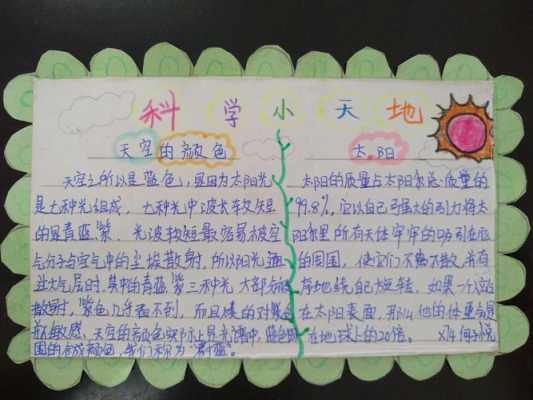 科学小天地
天空的颜色
天空之所以是蓝色，是因为太阳光
是七种光组成，七种光中波长较短
的是青蓝紫，光波较短最容易被空
气分子与空气中的尘埃散射，所以阳光
过大气层时，其中的青蓝紫三种光大部分被
散射，紫色几乎看不到，而且
敏感，天空的颜色实际上是光谱中蓝色
国的合成颜色，我们称为"蔚蓝"。
太阳
太阳的质量占太阳系总质量的
99.8%，它以自己强大的引力将太
阳系里所有天体牢牢的吸引在
的周围，使它们不离不散，并有
序地绕自己旋转，如果一个人站
在太阳表面，那么他的体重会是
在地球上的20倍。